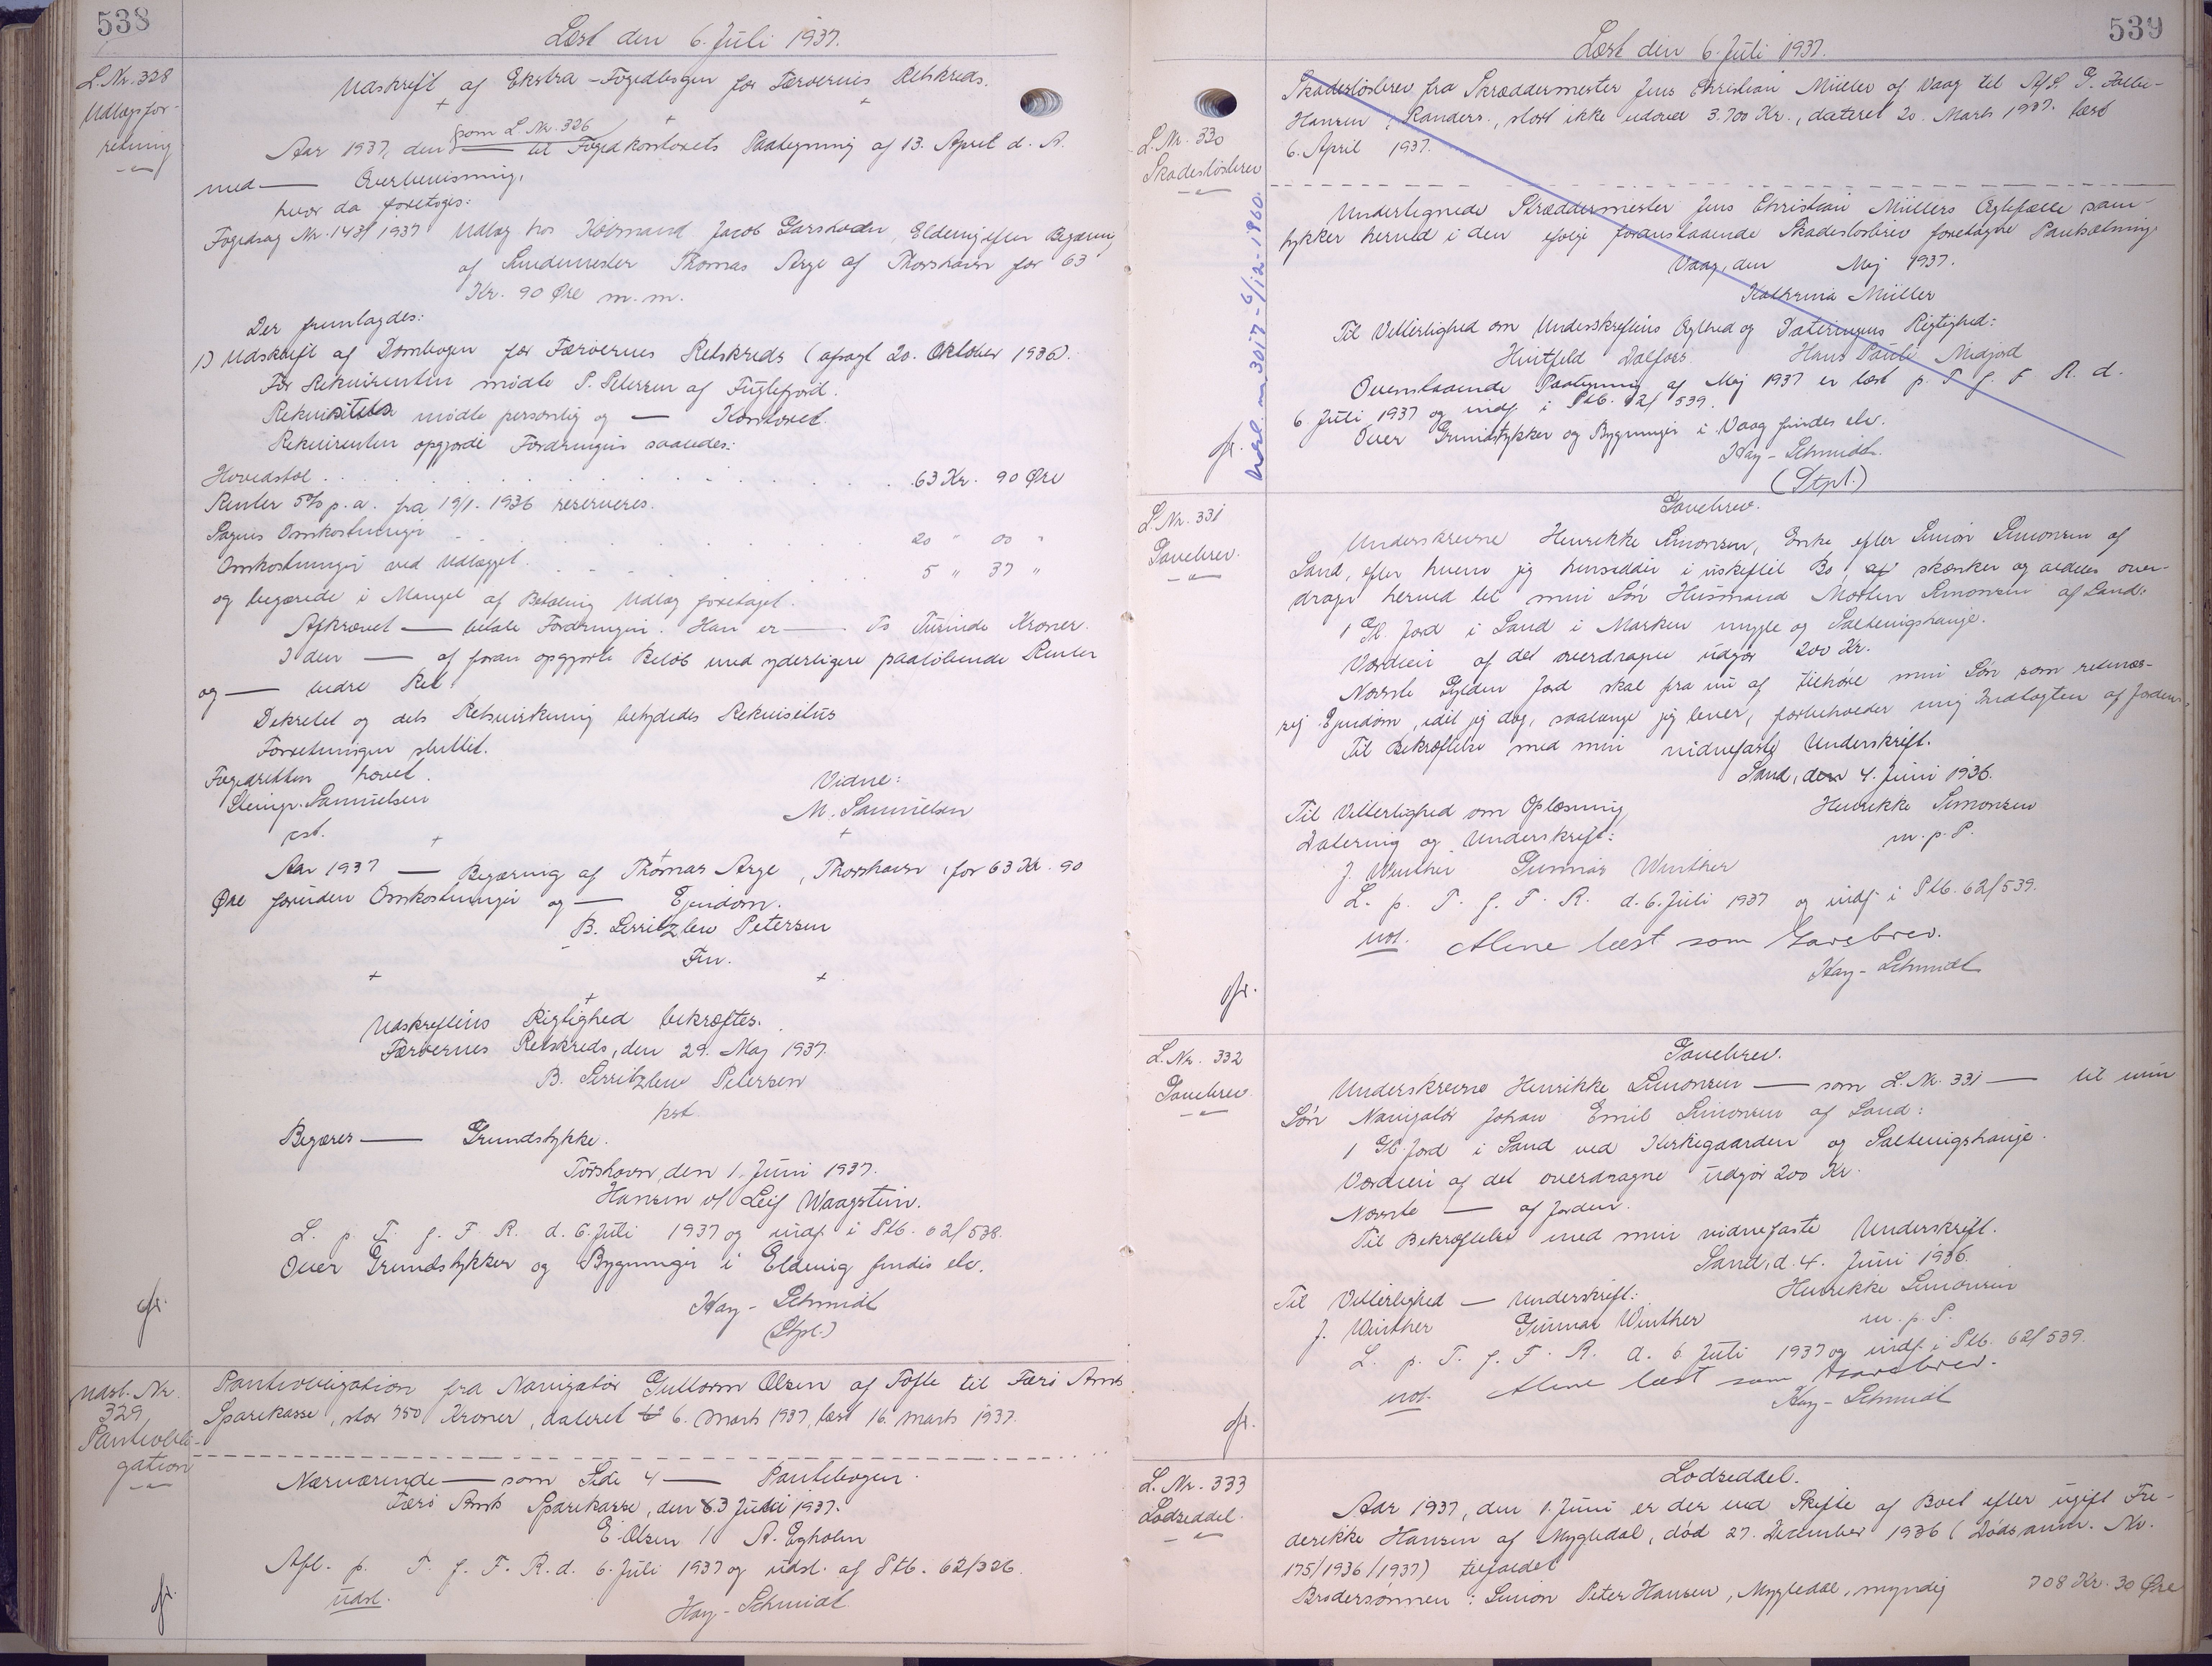 538
Læst den 6. Juli 1937.
L. Nr. 328
Udlægsfor-
retning
Udskrift af Ekstra-Fogedbogen for Færøernes Retskreds.
som L. Nr. 326
Aar 1937, den — til Fogedkontorets Paategning af 13. April d. A.
med — Overbevisning,
hvor da foretoges:
Fogedsag Nr. 143/1937 Udlæg hos Købmand Jacob Garskodn, Eldevig efter Begæring
af Smedemester Thomas Arge af Thorshavn for 63
Kr. 90 Øre m.m.
Der fremlagdes:
1) Udskrift af Dombogen for Færøernes Retskreds (afsagt 20. Oktober 1936).
For Rekvirenten mødte P. Petersen af Fuglefjord.
Rekvisitus mødte personlig og — Kontoret.
Rekvirenten opgjorde Fordringen saaledes:
Hovedstol . . . . . 63 Kr. 90 Øre
Renter 5% p.a. fra 19/1. 1936 reserveres.
Sagens Omkostninger . . . . . 20 " 00 "
Omkostninger ved Udlægget . . . . . 5 " 37 "
og begærede i Mangel af Betaling Udlæg foretaget.
Afkrævet — betale Fordringen. Han er — To Tusinde Kroner.
I den — af foran opgjorte Beløb med yderligere paaløbende Renter
og — bedre Ret.
Dekretet og dets Retsvirkning betydedes Rekvisitus
Forretningen sluttet.
Fogedretten hævet.
Steingr. Samuelsen
cst.
Vidne:
M. Samuelsen
Aar 1937 — Begæring af Thomas Arge, Thorshavn, for 63 Kr. 90
Øre foruden Omkostninger og — Ejendom.
B. Lerritzlew Petersen
Fm.
Udskriftens Rigtighed bekræftes.
Færøernes Retskreds, den 29. Maj 1937.
B. Lerritzlew Petersen
kst
Begæres — Grundstykke.
Tórshavn, den 1. Juni 1937.
Hansen v/ Leif Waagstein.
L. p. T. f. F. R. d. 6. Juli 1937 og indf. i Ptb. 62/538.
Over Grundstykker og Bygninger i Eldevig findes elv.
Kay-Schmidt
(Stpl.)
cfr.
Udsl. Nr.
329
Pantobli-
gation
Pantobligation fra Navigatør Guttorm Olsen af Tofte til Færø Amts
Sparekasse, stor 750 Kroner, dateret 6. Marts 1937, læst 16. Marts 1937.
Nærværende — som Side 4 — Pantebogen.
Færø Amts Sparekasse, den 3 Juli 1937.
E. Olsen / A. Egholm
Afl. p. T. f. F. R. d. 6. Juli 1937 og udsl. af Ptb. 62/326.
Udsl.
Kay-Schmidt
cfr.
539
Læst den 6. Juli 1937.
L. Nr. 330
Skadesløsbrev
Skadesløsbrev fra Skræddermester Jens Christian Müller af Vaag til
Hansen, Randers., stort ikke udover 3.700 Kr., dateret 20. Marts 1937. læst
6. April 1937.
Undertegnede Skræddermester Jens Christian Müllers Ægtefælle sam-
tykker herved i den ifølge foranstaaende Skadesløsbrev foretagne Pantsætning
Vaag, den Maj 1937.
Kathrina Müller
Til Vitterlighed om Underskriftens Ægthed og Dateringens Rigtighed:
Hvitfeld Dalfoss. Hans Pauli Midjord
Ovenstaaende Paategning af Maj 1937 er læst p. T. f. F. R. d.
6 Juli 1937 og indf. i Ptb. 62/539.
Over Grundstykker og Bygninger i Vaag findes elv.
Kay-Schmidt.
(Stpl.)
cfr.
udsl. nr. 3017 - 6/12-1960.
L. Nr. 331
Gavebrev.
Gavebrev.
Underskrevne Henrikke Simonsen, Enke efter Simon Simonsen af
Sand, efter hvem jeg hensidder i uskiftet Bo skænker og aldeles over-
drager herved til min Søn Husmand Morten Simonsen af Sand:
1 Gl. Jord i Sand i Marken mygle og Saltvigshauge.
Værdien af det overdragne udgør 200 Kr.
Nævnte Gylden Jord skal fra nu af tilhøre min Søn som retmæs-
sig Ejendom, idet jeg dog, saalænge jeg lever, forbeholder mig Indtægten af Jorden.
Til Bekræftelse med min vidnefaste Underskrift.
Sand, den 4. Juni 1936.
Henrikke Simonsen
m. p. P.
Til Vitterlighed om Oplæsning,
Datering og Underskrift:
J. Winther Gunnar Winther
L. p. T. f. F. R. d. 6. Juli 1937 og indf. i Ptb. 62/539.
not. Alene læst som Gavebrev.
Kay-Schmidt
cfr.
L. Nr. 332
Gavebrev
Gavebrev.
Underskrevne Henrikke Simonsen — som L. Nr. 331 — til min
Søn Navigatør Johan Emil Simonsen af Sand:
1 Gl. Jord i Sand ved Kirkegaarden og Saltvigshauge.
Værdien af det overdragne udgør 200 Kr.
Nævnte — af Jorden.
Til Bekræftelse med min vidnefaste Underskrift.
Sand, d. 4. Juni 1936.
Henrikke Simonsen
m. p. P.
Til Vitterlighed — Underskrift:
J. Winther Gunnar Winther
L. p. T. f. F. R. d. 6 Juli 1937 og indf. i Ptb. 62/539.
not. Alene læst som Gavebrev.
Kay-Schmidt
cfr.
L. Nr. 333
Lodseddel.
Lodseddel.
Aar 1937, den 1. Juni er der ved Skifte af Boet efter ugift Fre-
derikke Hansen af Mygledal, død 27. December 1936 (Dødsanm. Nr.
175/1936/1937) tilfaldet
Brodersønnen: Simon Peter Hansen, Mygledal, myndig 708 Kr. 30 Øre